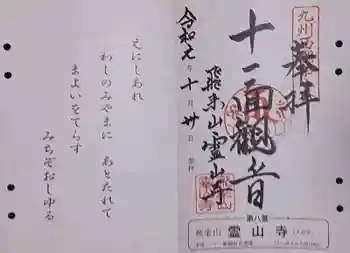 九州西国
奉拝
十一面観音
飛来山霊山寺
令和元年十月卅日
第八番
飛来山 霊山寺
えにしあれ
わしのみやまに あとたれて
まよいをてらす
みちぞおしゆる